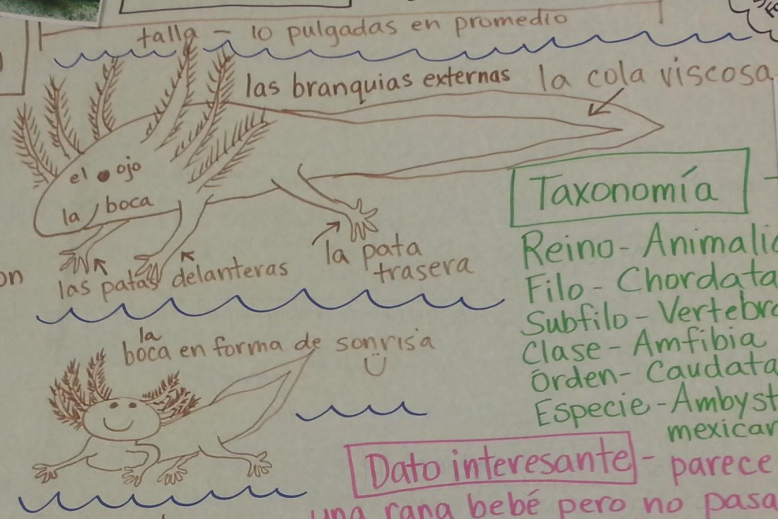 talla - 10 pulgadas en promedio
las branquias externas
la cola viscosa
el ojo
la boca
las patas delanteras
la pata
trasera
la
boca en forma de sonrisa
Taxonomía
Reino - Animalia
Filo - Chordata
Subfilo - Vertebra
Clase - Amfibia
Órden - Caudata
Especie - Ambyst
mexican
Dato interesante - parece
una rana bebé pero no pasa